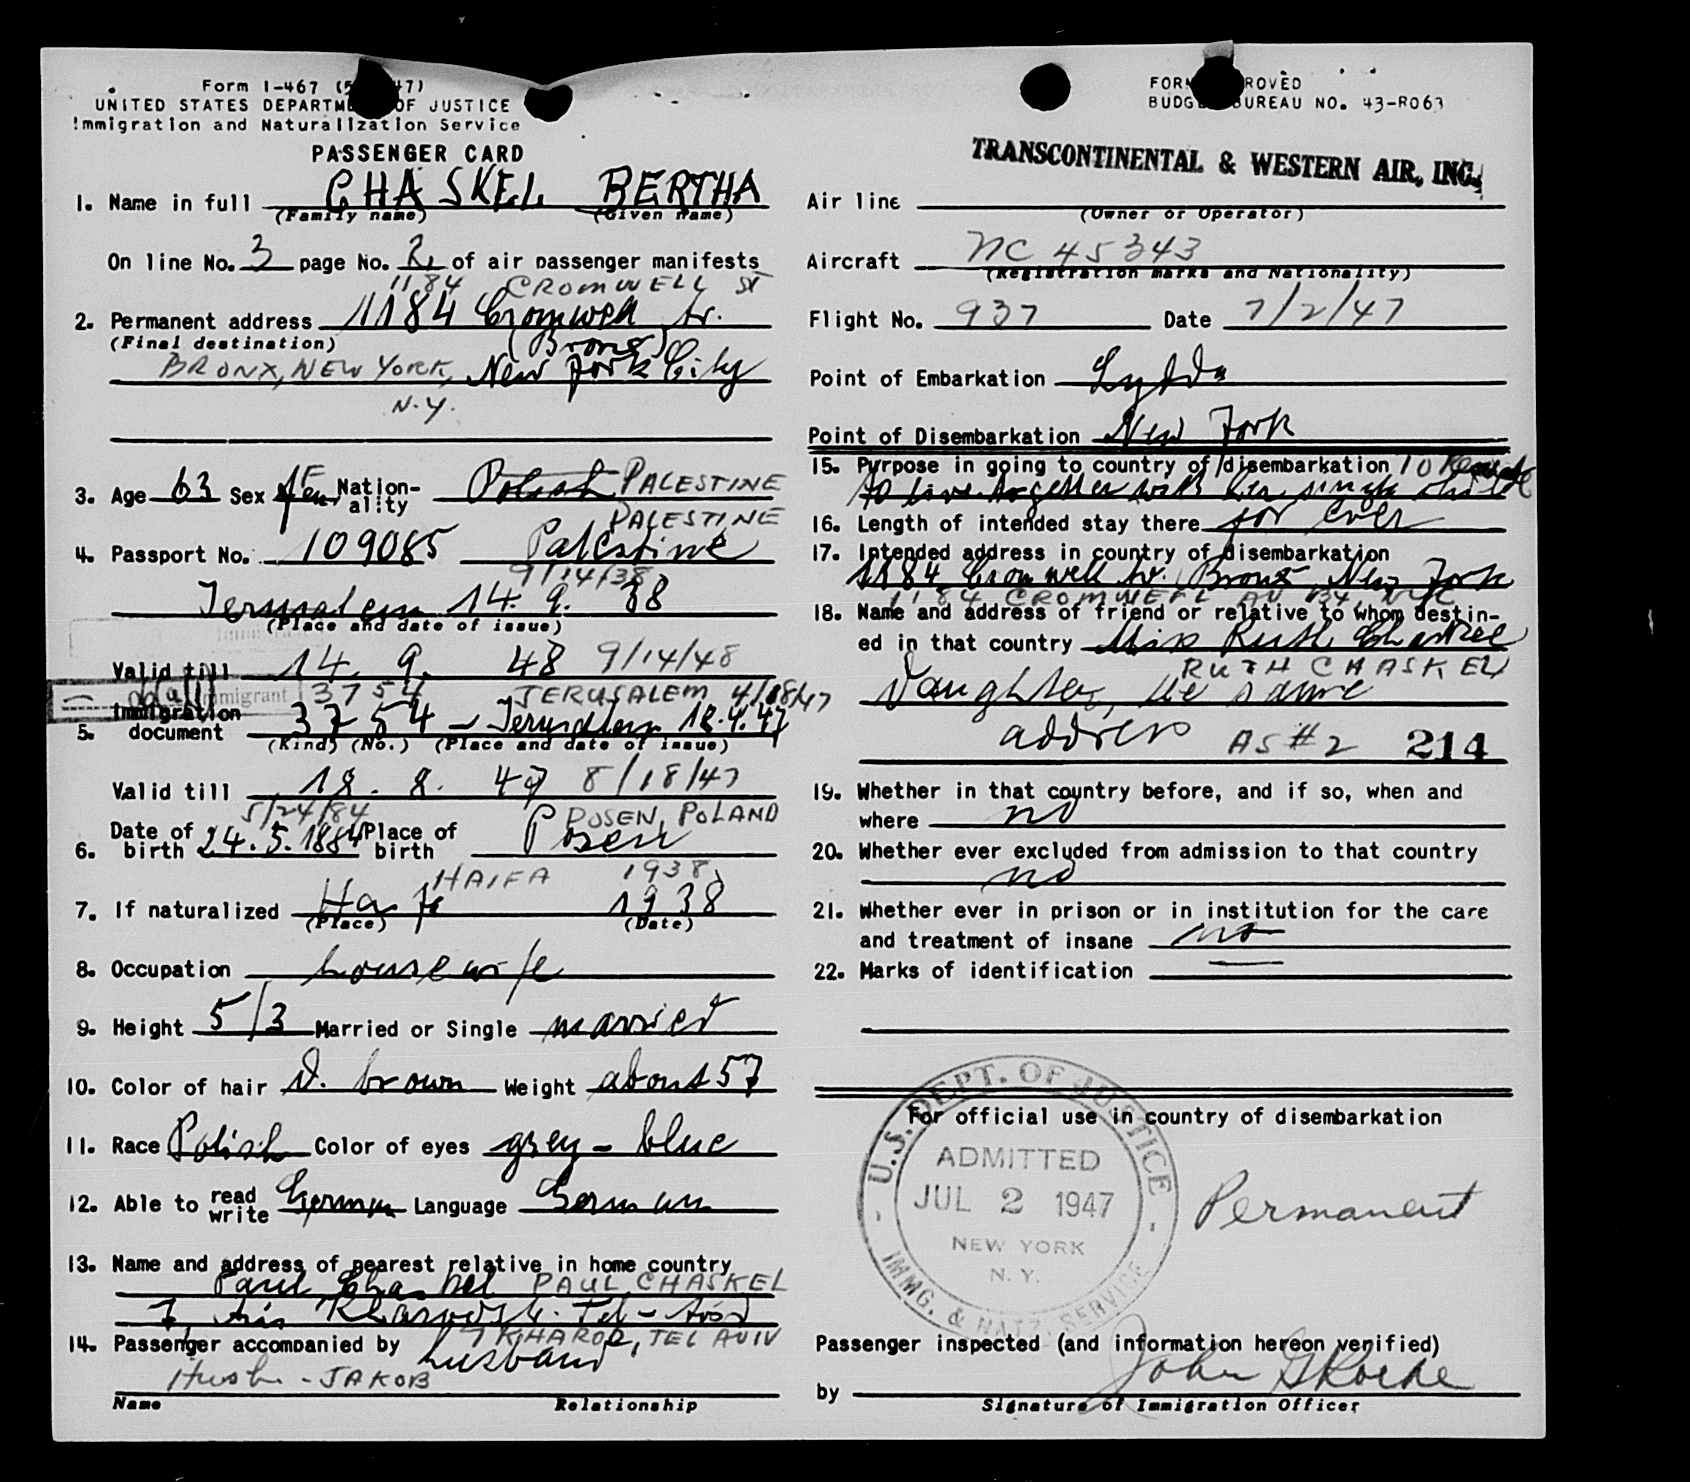 Form I-467 (5 47)
UNITED STATES DEPARTMENT OF JUSTICE
Immigration and Naturalization Service
PASSENGER CARD
1. Name in full CHASKEL BERTHA
(Family name) (Given name)
On line No. 3 page No. 2, of air passenger manifests
1184 CROMWELL ST
2. Permanent address 1184 Cromwell Av.
(Final destination) (Bronx)
BRONX, NEW YORK, New York City
N.Y.
3. Age 63 Sex Fem. Nation-ality Polish PALESTINE
PALESTINE
4. Passport No. 109085 Palestine
9/14/38
Jerusalem 14. 9. 38
(Place and date of issue)
Valid till 14. 9. 48 9/14/48
Immigrant 3754 JERUSALEM 4/18/47
5. Immigration document 3754 - Jerusalem 18.4.47
(Kind) (No.) (Place and date of issue)
Valid till 18. 8. 47 8/18/47
5/24/84 POSEN, POLAND
6. Date of birth 24.5.1884 Place of birth Posen
HAIFA 1938
7. If naturalized Haifa 1938
(Place) (Date)
8. Occupation housewife
9. Height 5/3 Married or Single married
10. Color of hair d. brown Weight about 57
11. Race Polish Color of eyes grey - blue
12. Able to read write German Language German
13. Name and address of nearest relative in home country
Paul Chaskel PAUL CHASKEL
7, Ain Kharod St. Tel-Aviv
7 KHAROD, TEL AVIV
14. Passenger accompanied by husband
Husb. - JAKOB
Name Relationship
FORM APPROVED
BUDGET BUREAU NO. 43-R063
TRANSCONTINENTAL & WESTERN AIR, INC.
Air line
(Owner or Operator)
Aircraft NC 45343
(Registration marks and Nationality)
Flight No. 937 Date 7/2/47
Point of Embarkation Lydda
Point of Disembarkation New York
15. Purpose in going to country of disembarkation TO
to live together with her single child
16. Length of intended stay there for ever
17. Intended address in country of disembarkation
1184 Cromwell Av. Bronx, New York
1184 CROMWELL AV BX, NYC
18. Name and address of friend or relative to whom destin-
ed in that country Miss Ruth Chaskel
RUTH CHASKEL
Daughter, the same
address AS #2 214
19. Whether in that country before, and if so, when and
where no
20. Whether ever excluded from admission to that country
no
21. Whether ever in prison or in institution for the care
and treatment of insane no
22. Marks of identification —
For official use in country of disembarkation
U.S. DEPT. OF JUSTICE
ADMITTED
JUL 2 1947
NEW YORK
N. Y.
IMMG. & NATZ. SERVICE
Permanent
Passenger inspected (and information hereon verified)
by John
Signature of Immigration Officer